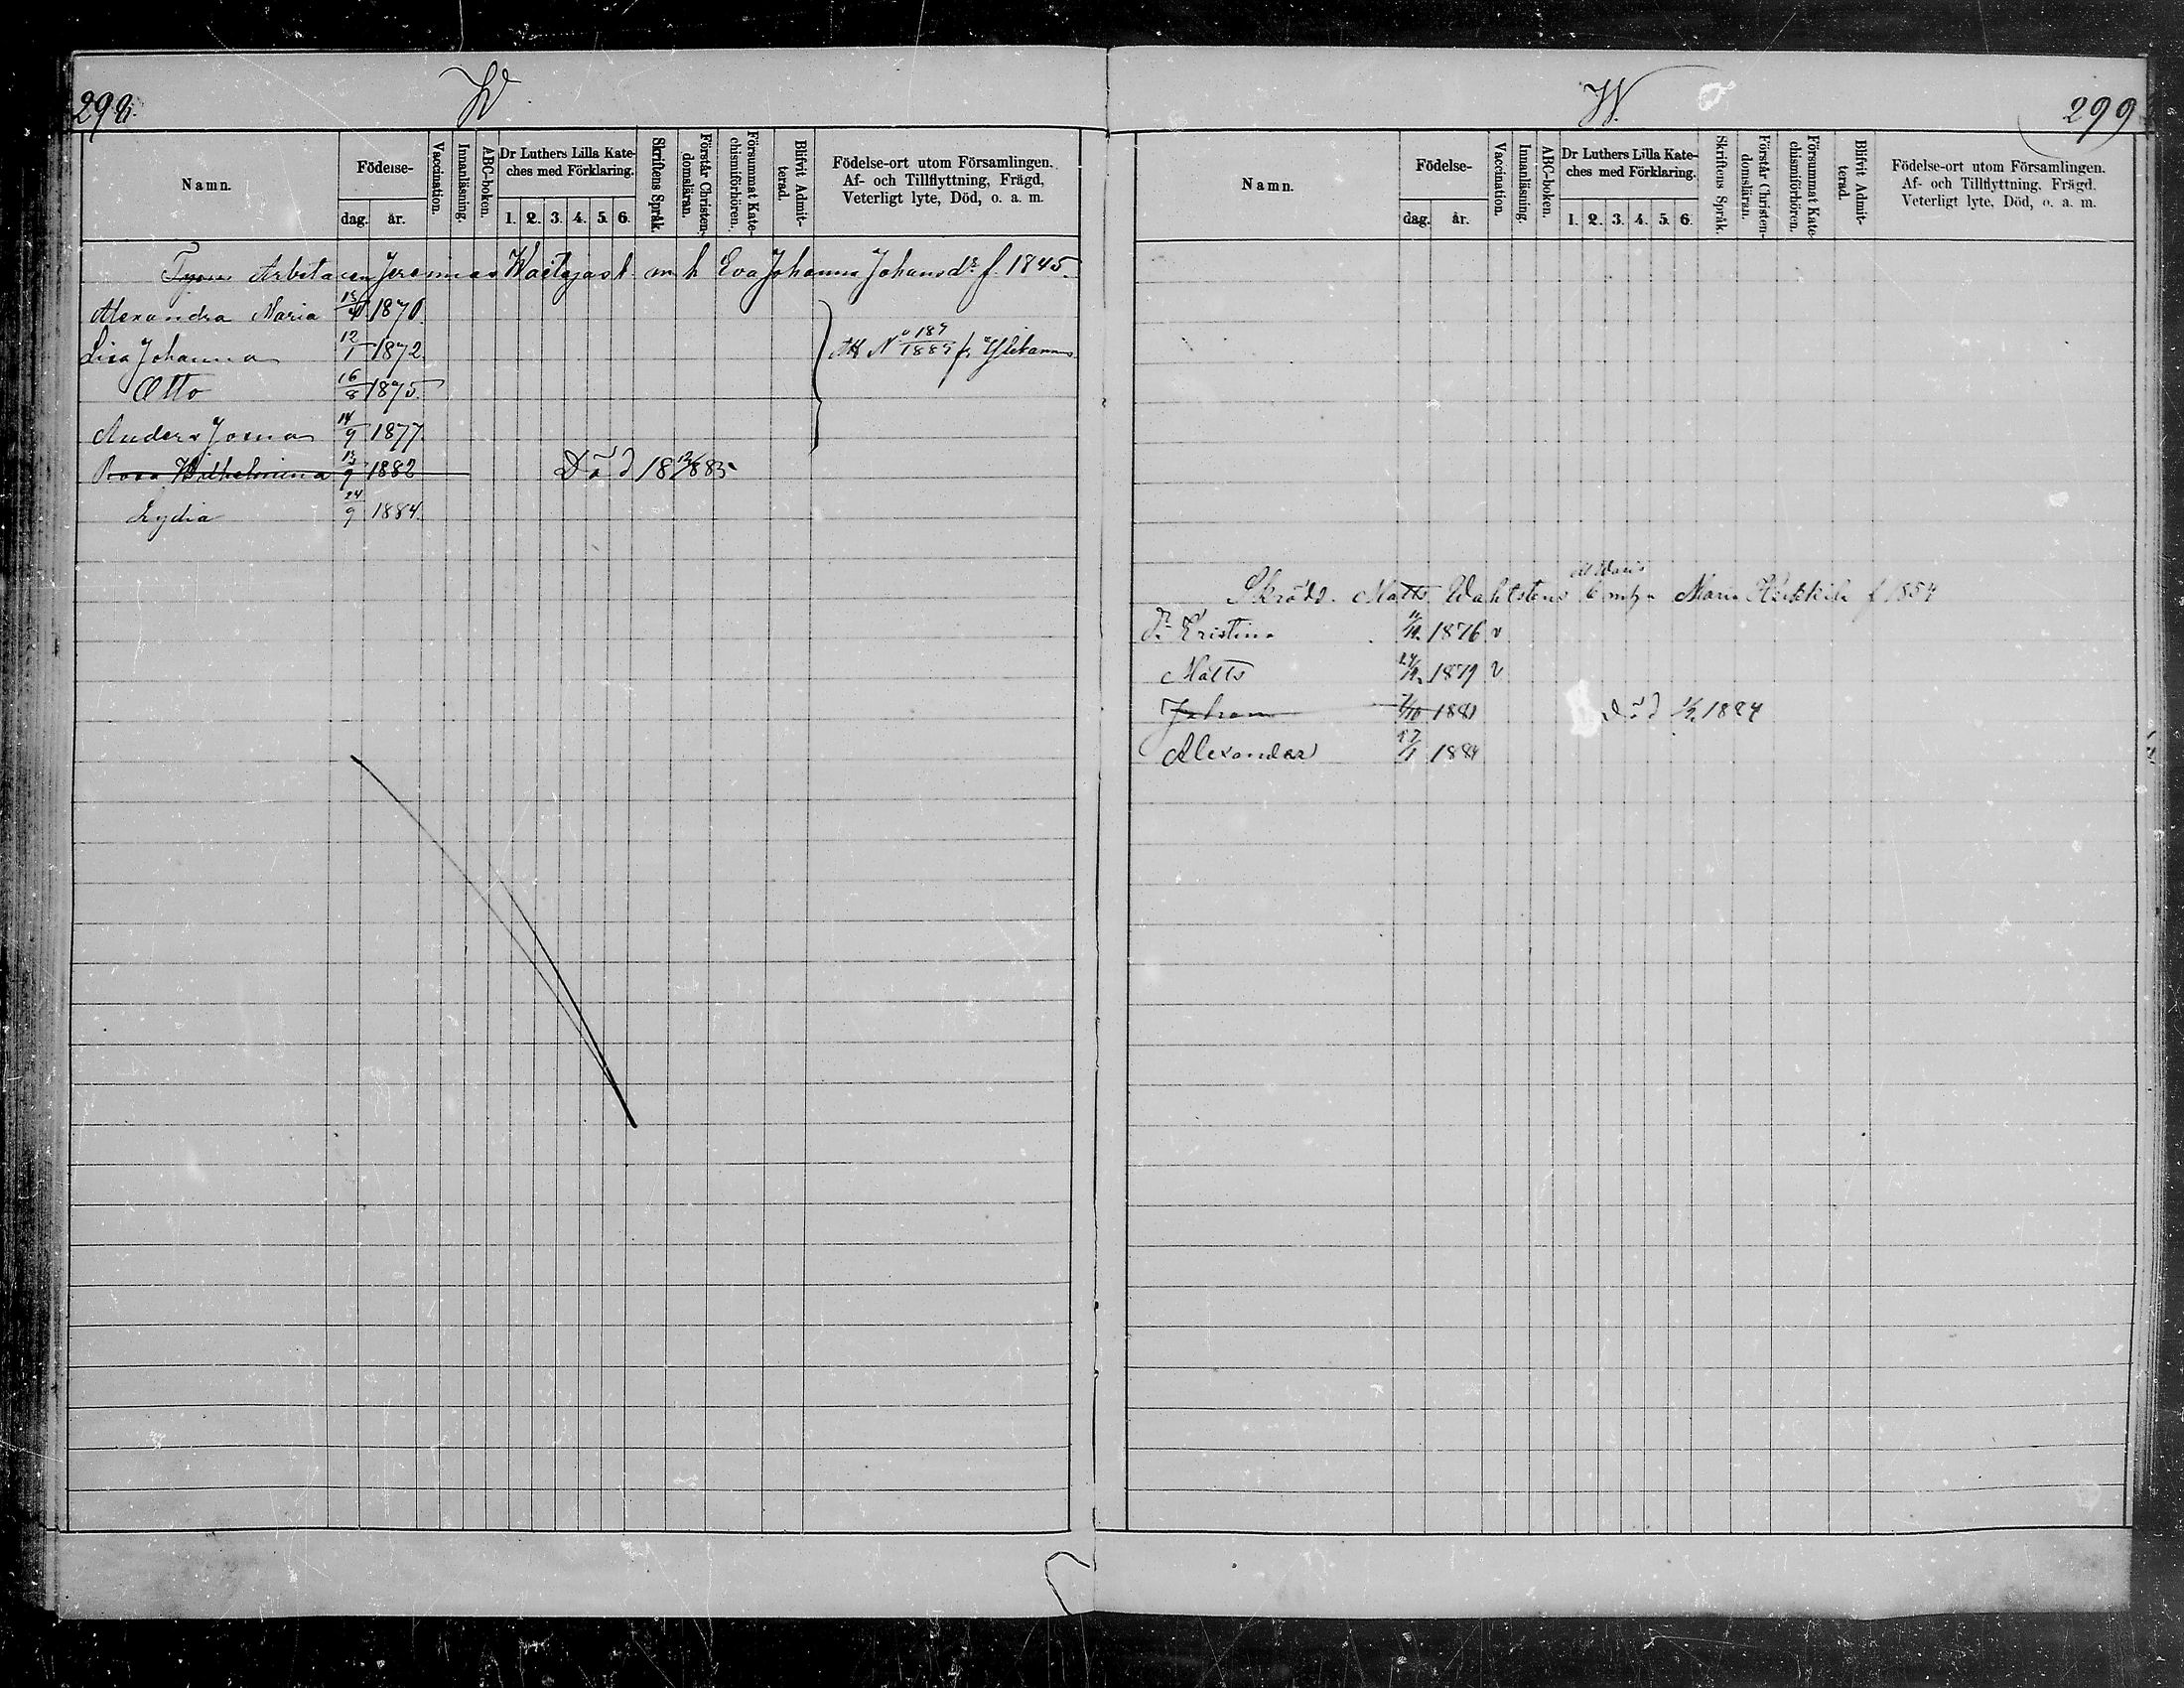 298.
W
Namn.
Födelse-
dag.
år.
Vaccination.
Innanläsning.
ABC-boken.
Dr Luthers Lilla Kate-
ches med Förklaring.
1. 2. 3. 4. 5. 6.
Skriftens Språk.
Förstår Christen-
domsläran.
Försummat Kate-
chismiförhören.
Blifvit Admit-
terad.
Födelse-ort utom Församlingen.
Af- och Tillflyttning, Frägd,
Veterligt lyte, Död, o. a. m.
Arbetaren Jeremias m h Eva Johanna Johansdr f. 1845.
Alexandra Maria 1870.
Lisa Johanna 12/1 1872.
Otto 16/8 1875.
Att No 1889 fr
Anders Josua 14/9 1877.
Rosa Wilhelmina 13/9 1882 Död 1883.
Lydia 24/9 1884.
W.
299
Namn.
Födelse-
dag.
år.
Vaccination.
Innanläsning.
ABC-boken.
Dr Luthers Lilla Kate-
ches med Förklaring.
1. 2. 3. 4. 5. 6.
Skriftens Språk.
Förstår Christen-
domsläran.
Försummat Kate-
chismiförhören.
Blifvit Admit-
terad.
Födelse-ort utom Församlingen.
Af- och Tillflyttning, Frägd.
Veterligt lyte, Död, o. a. m.
Skrädd. Matts Wahlstens Maria f 1854
Kristina 1876 v
Matts 1879 v
Johan 7/10 1881 Död 1884
Alexander 17/1 1884